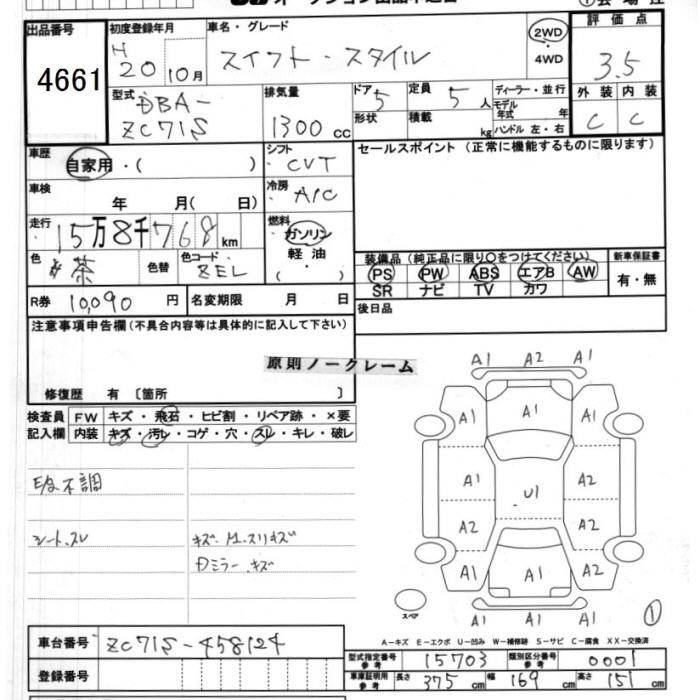 出品番号
4661
初度登録年月
H 20 10月
車名・グレード
スイフト・スタイル
2WD
・
4WD
評価点
3.5
型式
DBA-
ZC71S
排気量
1300 cc
ドア 5
形状
定員 5 人
積載 kg
ディーラー・並行
モデル年式 年
ハンドル 左・右
外装 内装
C C
車歴
自家用・( )
シフト
CVT
セールスポイント(正常に機能するものに限ります)
車検
年 月( 日)
冷房
A/C
走行
15万8千768km
燃料
ガソリン
軽油
( )
色
茶
色替
色コード
ZEL
装備品(純正品に限り○をつけてください)
新車保証書
PS PW ABS エアB AW
SR ナビ TV カワ
有・無
R券 10,090 円
名変期限 月 日
後日品
注意事項申告欄(不具合内容等は具体的に記入して下さい)
原則ノークレーム
修復歴 有 〔箇所 〕
検査員
記入欄
FW キズ・飛石・ヒビ割・リペア跡・×要
内装 キズ・汚レ・コゲ・穴・スレ・キレ・破レ
不調
シート.スレ
キズ.M.スリキズ
Dミラー.キズ
A1 A2 A1
A1 A1 A1
A1 A2
U1
A2 A2
A1 A1 A1
A1 A1 A1
スペア
①
A-キズ E-エクボ U-凹み W-補修跡 S-サビ C-腐食 XX-交換済
車台番号 ZC71S-458124
型式指定番号 参考 15703
類別区分番号 参考 0001
登録番号
車庫証明用 参考 長さ 375 cm 幅 169 cm 高さ 151 cm